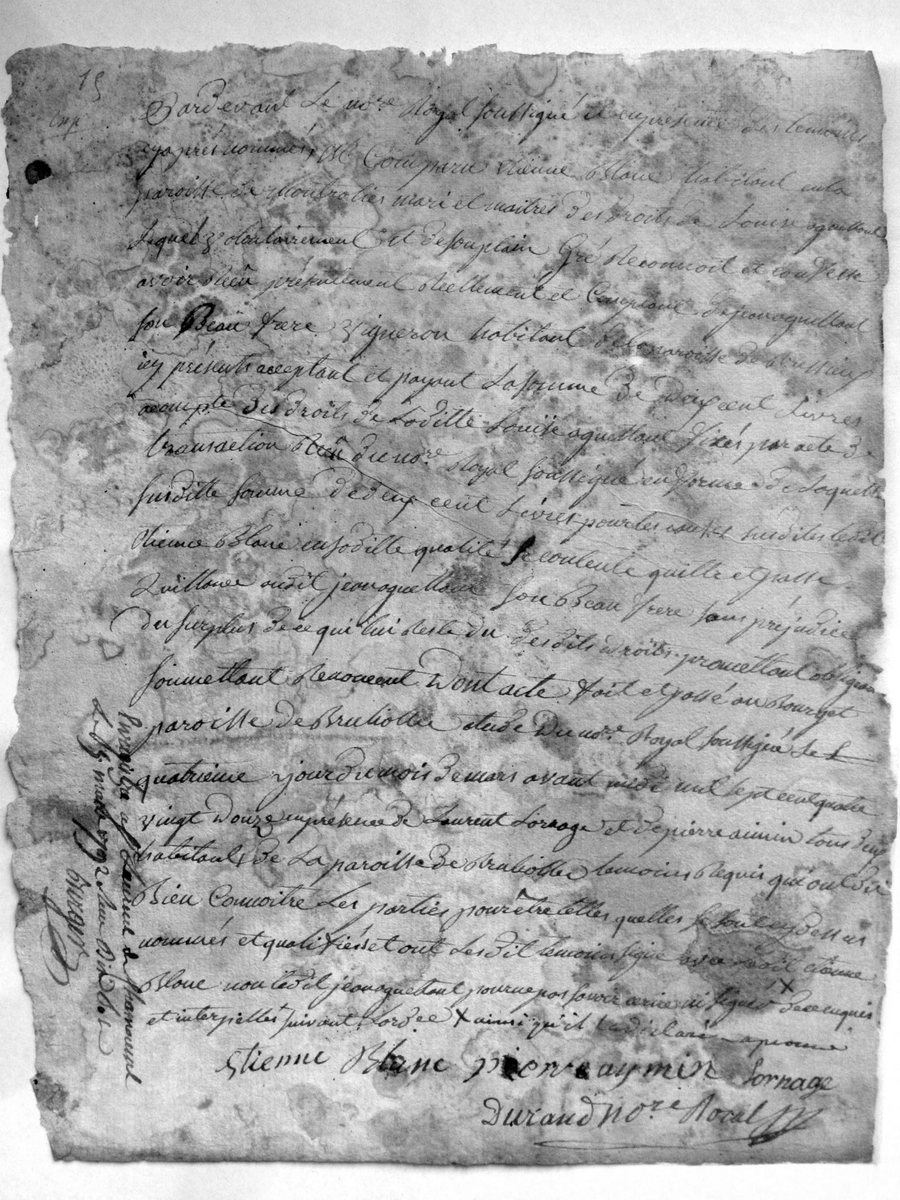 15
Pardevant Le no.re Royal soussigné et en présence des temoins
cyaprés nommés, est Comparu etienne Blanc habitant en la
paroisse de mari et maitres des droits de Louise aquettant
Lequel volontairement et de son plain Gré Reconnoit et confesse
avoir Reçu présentement Réellement et Comptant de jean aquettant
son Beau frere vigneron habitant de la paroisse de
icy présent acceptant et payant La somme de Deux cent Livres
acompte des droits de Laditte Louise aquettant fixés par acte de
transaction Reçu du no.re Royal soussigné en forme de Laquelle
susditte somme de deux cent Livres pour les causes susdites ledit
etienne Blanc en saditte qualité se contente quitte et passe
Quittance audit jean aquettant son Beau frere sans préjudice
du surplus de ce qui lui Reste du desdits droits promettant obligeant
soumettant Renoncent Dont acte fait et passé au Bourg et
paroisse de étude Du no.re Royal soussigné Le
quatrieme jour du mois de mars avant midi mil sept cent quatre
vingt Douze en présence de Laurent Lornage et de pierre aimin tous deux
habitants de La paroisse de temoins Requis qui ont dit
Bien Connoitre Les parties pour être telles quelles se sont cy dessus
nommés et qualifiés et ont Lesdit temoins signé avec Ledit etienne
Blanc non Ledit jean aquettant pour ne pas savoir ecrire ni signer x De ce enquis
et interpellés suivant L'ordce x ainsi qu'il La déclaré
etienne Blanc pierre aymin Lornage
Durand no.re Royal
Le 15 mars 1792